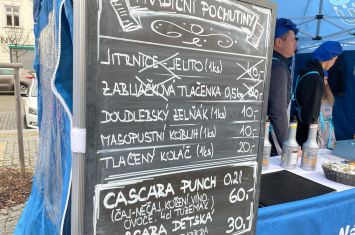 TRADIČNÍ POCHUTINY
JITRNICE - JELITO (1ks)
ZABIJAČKOVÁ TLAČENKA 0,5kg
DOUDLEBSKÝ ŽELŇÁK (1ks) 10,-
MASOPUSTNÍ KOBLIH (1ks) 10,-
TLAČENÝ KOLÁČ (1ks) 20,-
CASCARA PUNCH 0,2l
(ČAJ-NEČAJ, KOŘENÍ, VÍNO, 60,-
OVOCE, 4cl TUZEMÁK)
DĚTSKÁ 30,-